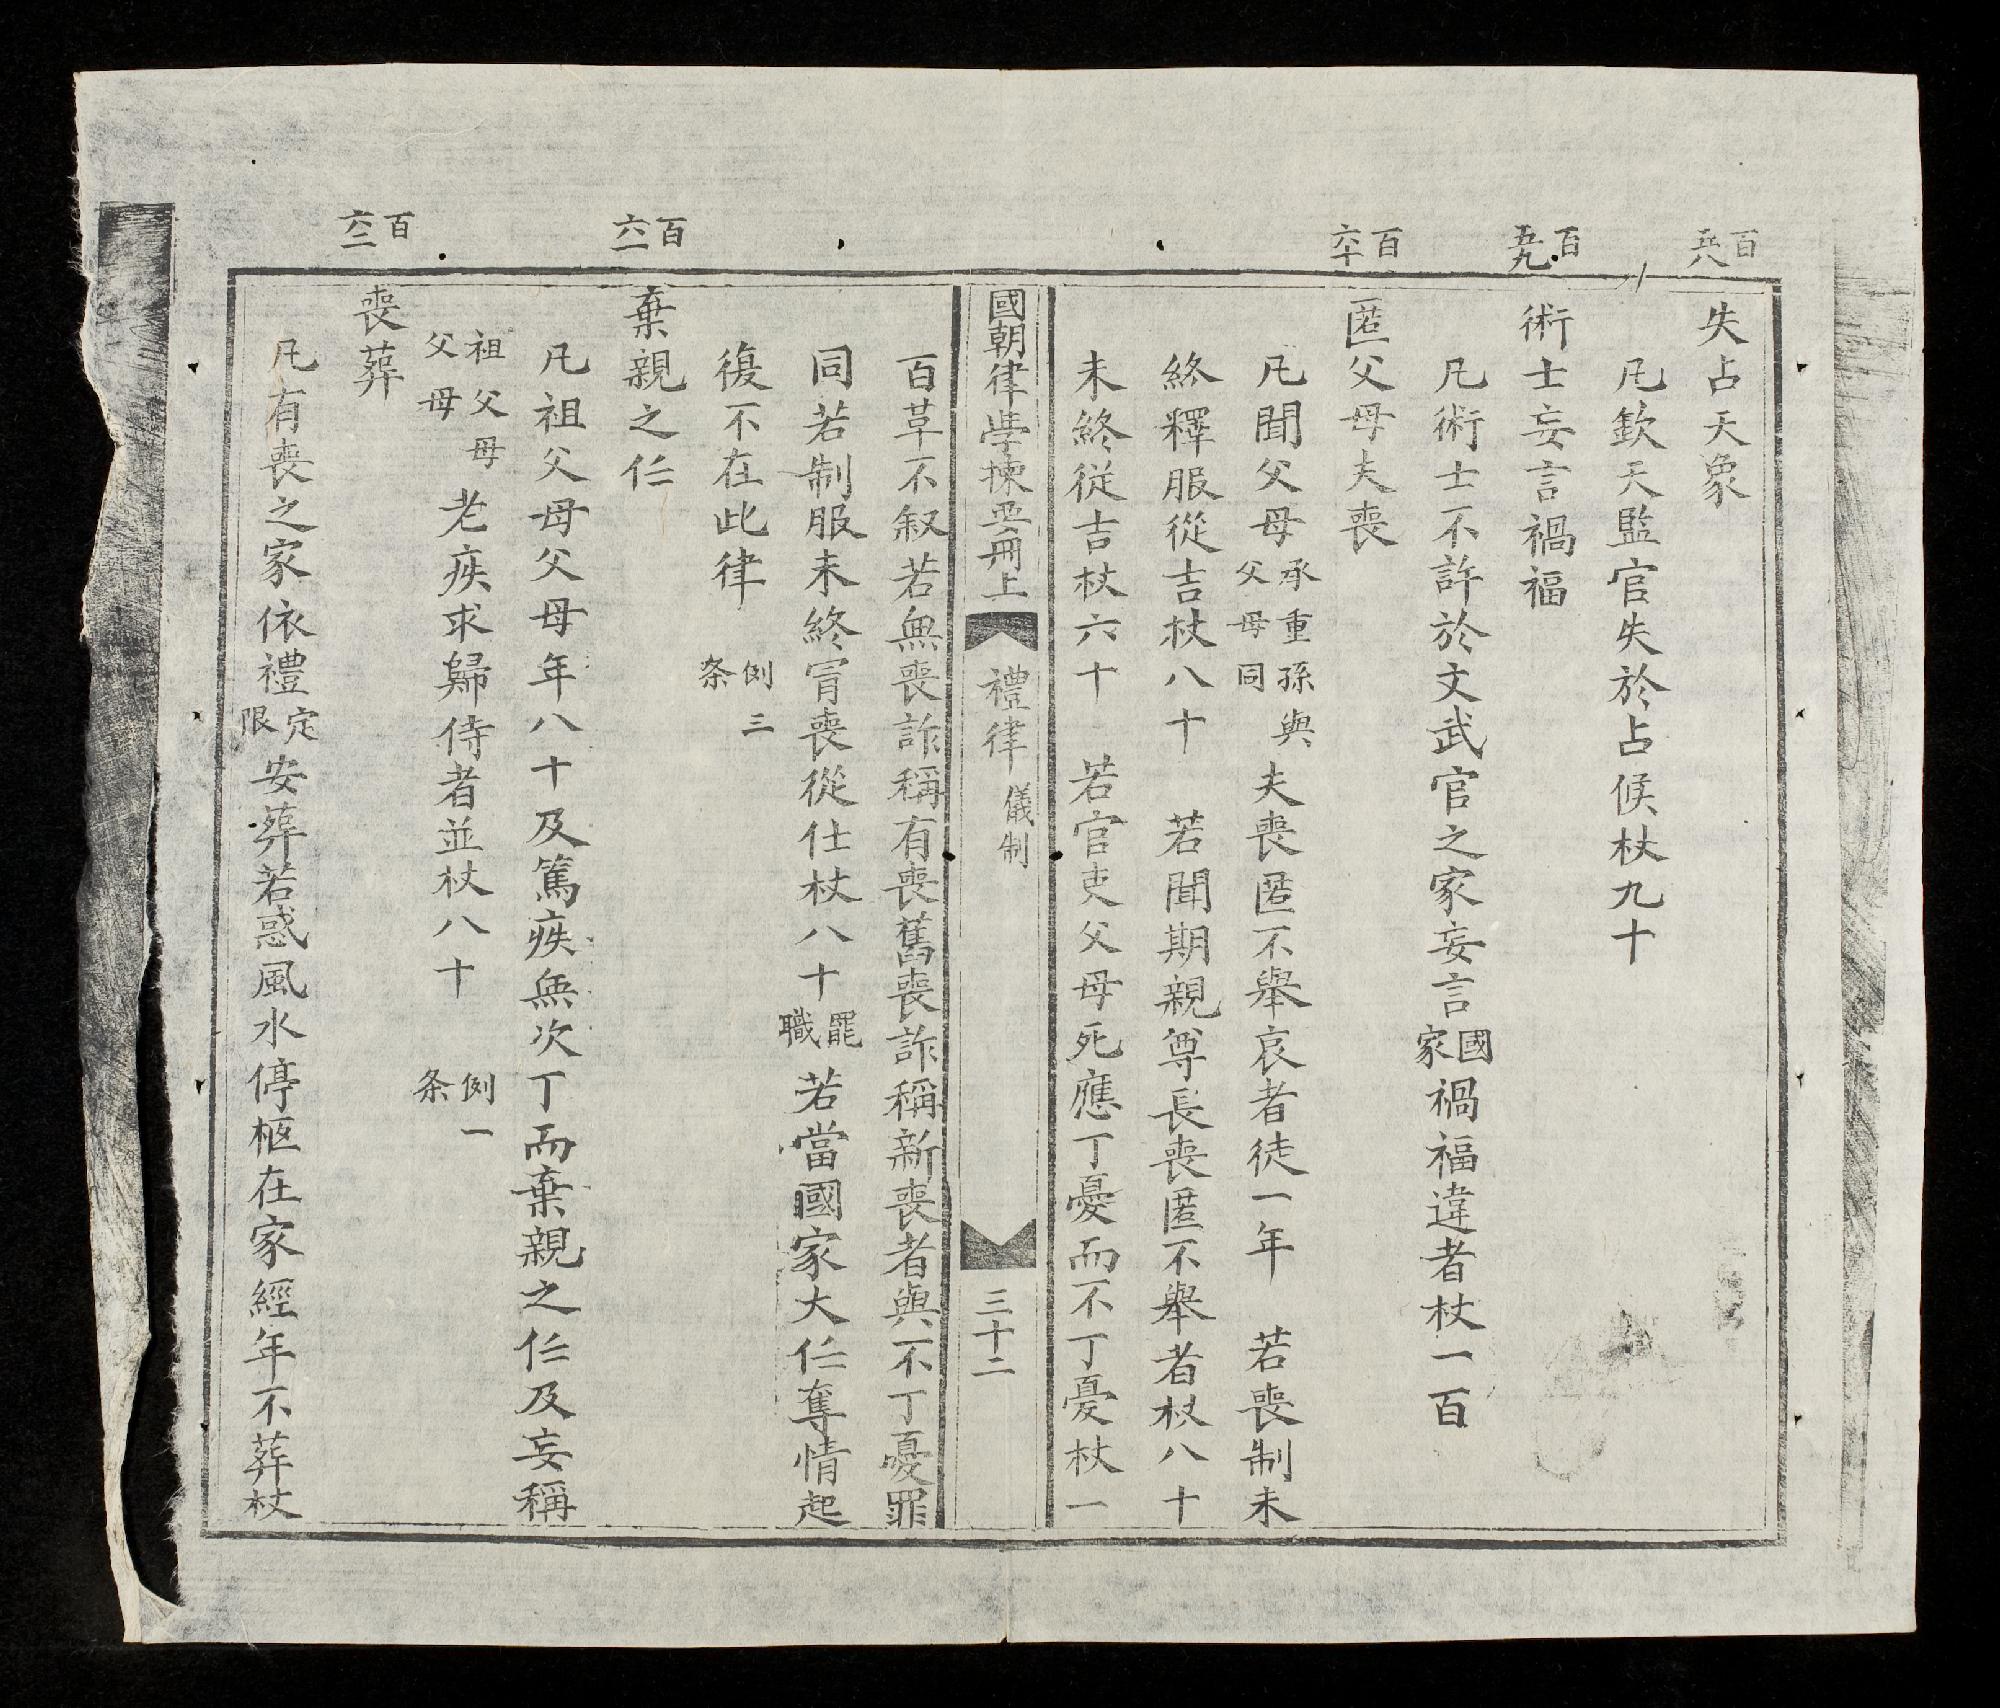 百五八
失占天象
凢欽天監官失於占候杖九十
百五九
術士妄言禍福
凢術士不許於文武官之家妄言國家禍福違者杖一百
百六十
匿父母夫喪
凢聞父母承重孫與父母同夫喪匿不舉哀者徒一年　若喪制未
終釋服從吉杖八十　若聞期親尊長喪匿不舉者杖八十
未終從吉杖六十　若官吏父母死應丁憂而不丁憂杖一
國朝律學揀要冊上　禮律　儀制　三十二
百革不叙若無喪詐稱有喪舊喪詐稱新喪者與不丁憂罪
同若制服未終冐喪從仕杖八十罷職若當國家大仜奪情起
復不在此律　例三条
百六一
棄親之仜
凢祖父母父母年八十及篤疾無次丁而棄親之仜及妄稱
祖父母父母老疾求歸侍者並杖八十　例一条
百六二
喪葬
凢有喪之家依禮定限安葬若惑風水停柩在家經年不葬杖